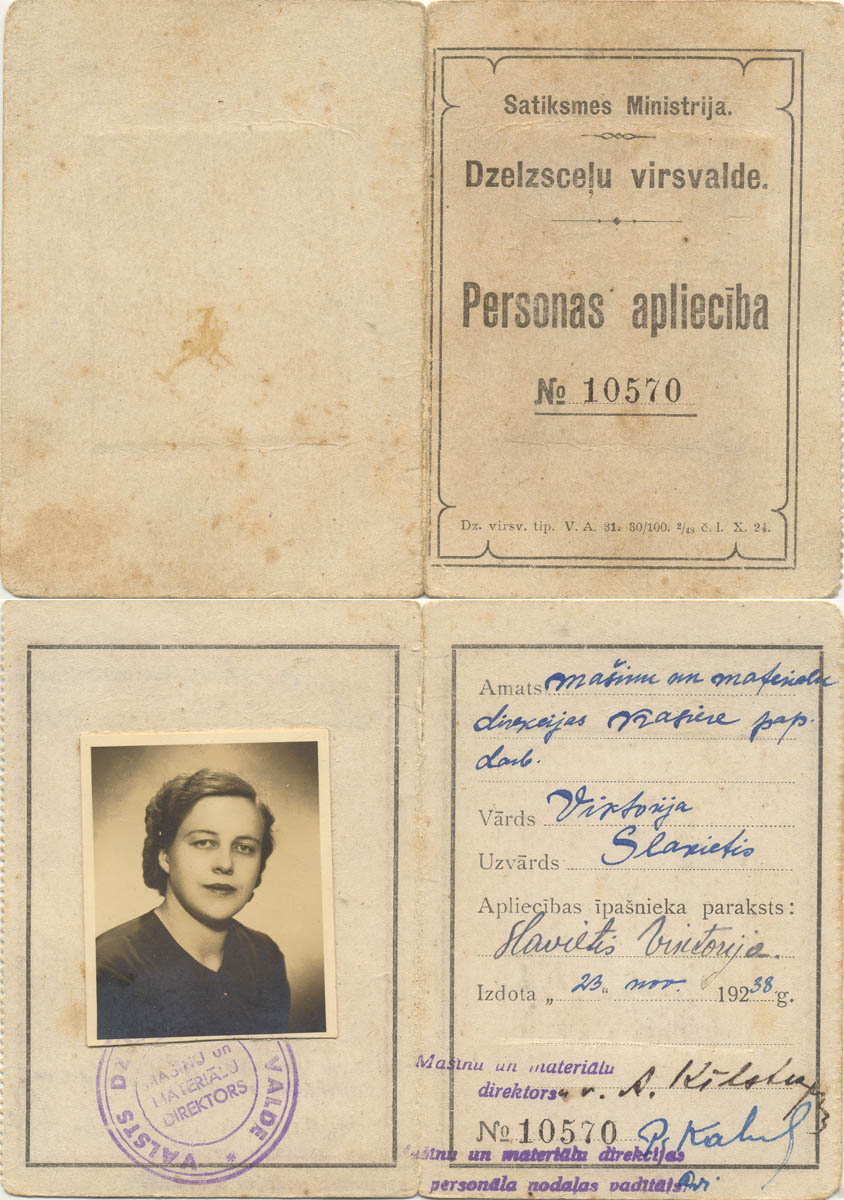 Satiksmes Ministrija.
Dzelzsceļu virsvalde.
Personas apliecība
№ 10570
Dz. virsv. tip. V. A. 31. 30/100. ²/₄₈ č. l. X. 24.
Amats mašinu un materialu
direkcijas kasiere pap.
darb.
Vārds Viktorija
Uzvārds Slavietis
Apliecības īpašnieka paraksts:
Slavietis Viktorija.
Izdota „ 23 “ nov. 192 38 g.
Mašīnu un materiālu
direktors v. A.
№ 10570
Mašīnu un materiālu direkcijas
personāla nodaļas vadītājs
VALSTS DZ VALDE *
MAŠĪNU un
MATERIĀLU
DIREKTORS